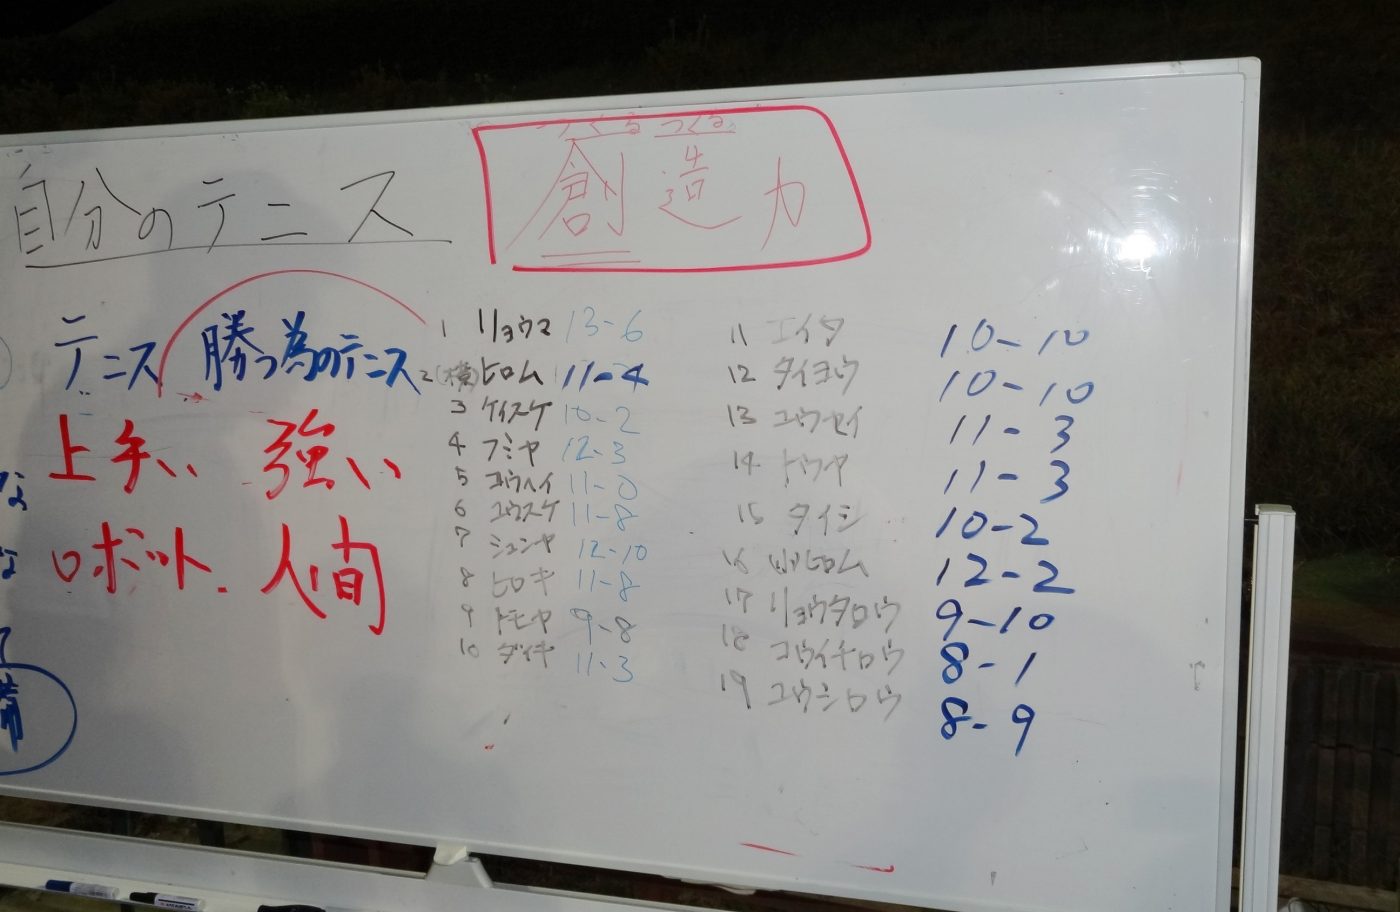 つくる つくる
自分のテニス 創造力
テニス 勝つ為のテニス
上手い 強い
ロボット. 人間
1 リョウマ 13-6
2 (横)ヒロム 11-4
3 ケイスケ 10-2
4 フミヤ 12-3
5 コウヘイ 11-0
6 ユウスケ 11-8
7 シュンヤ 12-10
8 ヒロキ 11-8
9 トモヤ 9-8
10 ダイキ 11-3
11 エイタ 10-10
12 タイヨウ 10-10
13 ユウセイ 11-3
14 トウヤ 11-3
15 タイシ 10-2
16 ヒロム 12-2
17 リョウタロウ 9-10
18 コウイチロウ 8-1
19 ユウシロウ 8-9
な
な